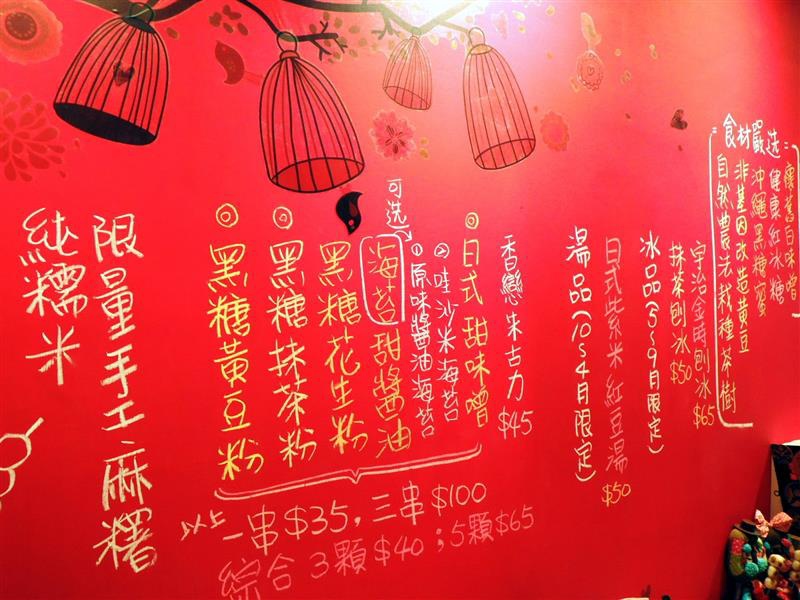 =食材嚴选=
懷舊白味噌
健康紅冰糖
沖繩黑糖蜜
非基因改造黃豆
自然農法栽種茶樹
宇治金時刨冰$65
抹茶刨冰$50
冰品(5~9月限定)
日式紫米紅豆湯$50
湯品(10~4月限定)
香戀朱古力$45
◎日式甜味噌
②哇沙米海苔
①原味醬油海苔
可选
海苔甜醬油
黑糖花生粉
◎黑糖抹茶粉
◎黑糖黃豆粉
以上一串$35,三串$100
綜合3顆$40;5顆$65
限量手工麻糬
純糯米